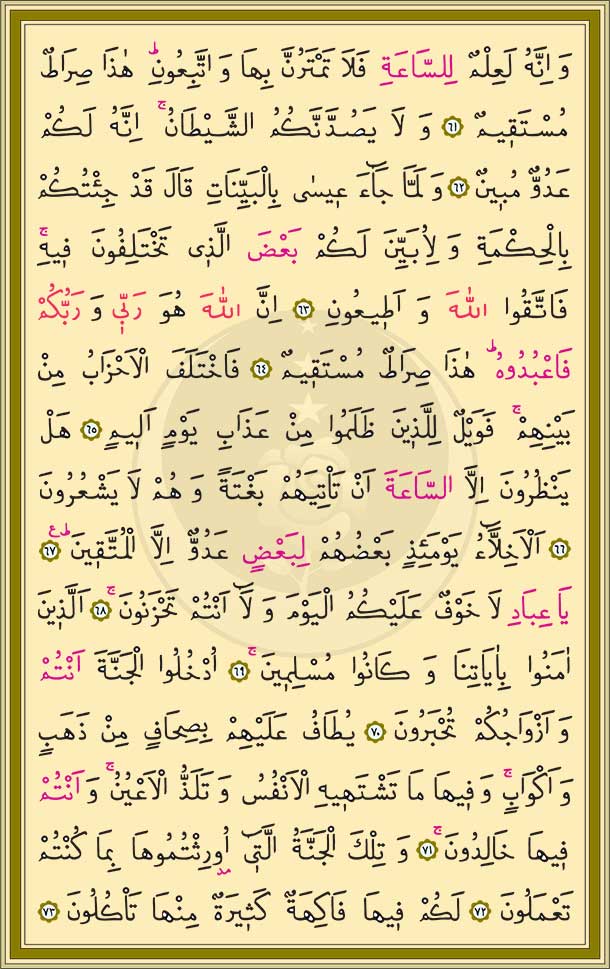 وَ اِنَّهُ لَعِلْمٌ لِلسَّاعَةِ فَلَا تَمْتَرُنَّ بِهَا وَ اتَّبِعُونِۜ هٰذَا صِرَاطٌ
مُسْتَقٖيمٌ ﴿٦١﴾ وَ لَا يَصُدَّنَّكُمُ الشَّيْطَانُۚ اِنَّهُ لَكُمْ
عَدُوٌّ مُبٖينٌ ﴿٦٢﴾ وَ لَمَّا جَٓاءَ عٖيسٰى بِالْبَيِّنَاتِ قَالَ قَدْ جِئْتُكُمْ
بِالْحِكْمَةِ وَ لِاُبَيِّنَ لَكُمْ بَعْضَ الَّذٖى تَخْتَلِفُونَ فٖيهِۚ
فَاتَّقُوا اللّٰهَ وَ اَطٖيعُونِ ﴿٦٣﴾ اِنَّ اللّٰهَ هُوَ رَبّٖى وَ رَبُّكُمْ
فَاعْبُدُوهُۜ هٰذَا صِرَاطٌ مُسْتَقٖيمٌ ﴿٦٤﴾ فَاخْتَلَفَ الْاَحْزَابُ مِنْ
بَيْنِهِمْۚ فَوَيْلٌ لِلَّذٖينَ ظَلَمُوا مِنْ عَذَابِ يَوْمٍ اَلٖيمٍ ﴿٦٥﴾ هَلْ
يَنْظُرُونَ اِلَّا السَّاعَةَ اَنْ تَاْتِيَهُمْ بَغْتَةً وَ هُمْ لَا يَشْعُرُونَ
﴿٦٦﴾ اَلْاَخِلَّٓاءُ يَوْمَئِذٍ بَعْضُهُمْ لِبَعْضٍ عَدُوٌّ اِلَّا الْمُتَّقٖينَۜ ع ﴿٦٧﴾
يَا عِبَادِ لَا خَوْفٌ عَلَيْكُمُ الْيَوْمَ وَ لَٓا اَنْتُمْ تَحْزَنُونَۚ ﴿٦٨﴾ اَلَّذٖينَ
اٰمَنُوا بِاٰيَاتِنَا وَ كَانُوا مُسْلِمٖينَۚ ﴿٦٩﴾ اُدْخُلُوا الْجَنَّةَ اَنْتُمْ
وَ اَزْوَاجُكُمْ تُحْبَرُونَ ﴿٧٠﴾ يُطَافُ عَلَيْهِمْ بِصِحَافٍ مِنْ ذَهَبٍ
وَ اَكْوَابٍۚ وَ فٖيهَا مَا تَشْتَهٖيهِ الْاَنْفُسُ وَ تَلَذُّ الْاَعْيُنُۚ وَ اَنْتُمْ
فٖيهَا خَالِدُونَۚ ﴿٧١﴾ وَ تِلْكَ الْجَنَّةُ الَّتٖٓى اُورِثْتُمُوهَا بِمَا كُنْتُمْ
تَعْمَلُونَ ﴿٧٢﴾ لَكُمْ فٖيهَا فَاكِهَةٌ كَثٖيرَةٌ مِنْهَا تَاْكُلُونَ ﴿٧٣﴾